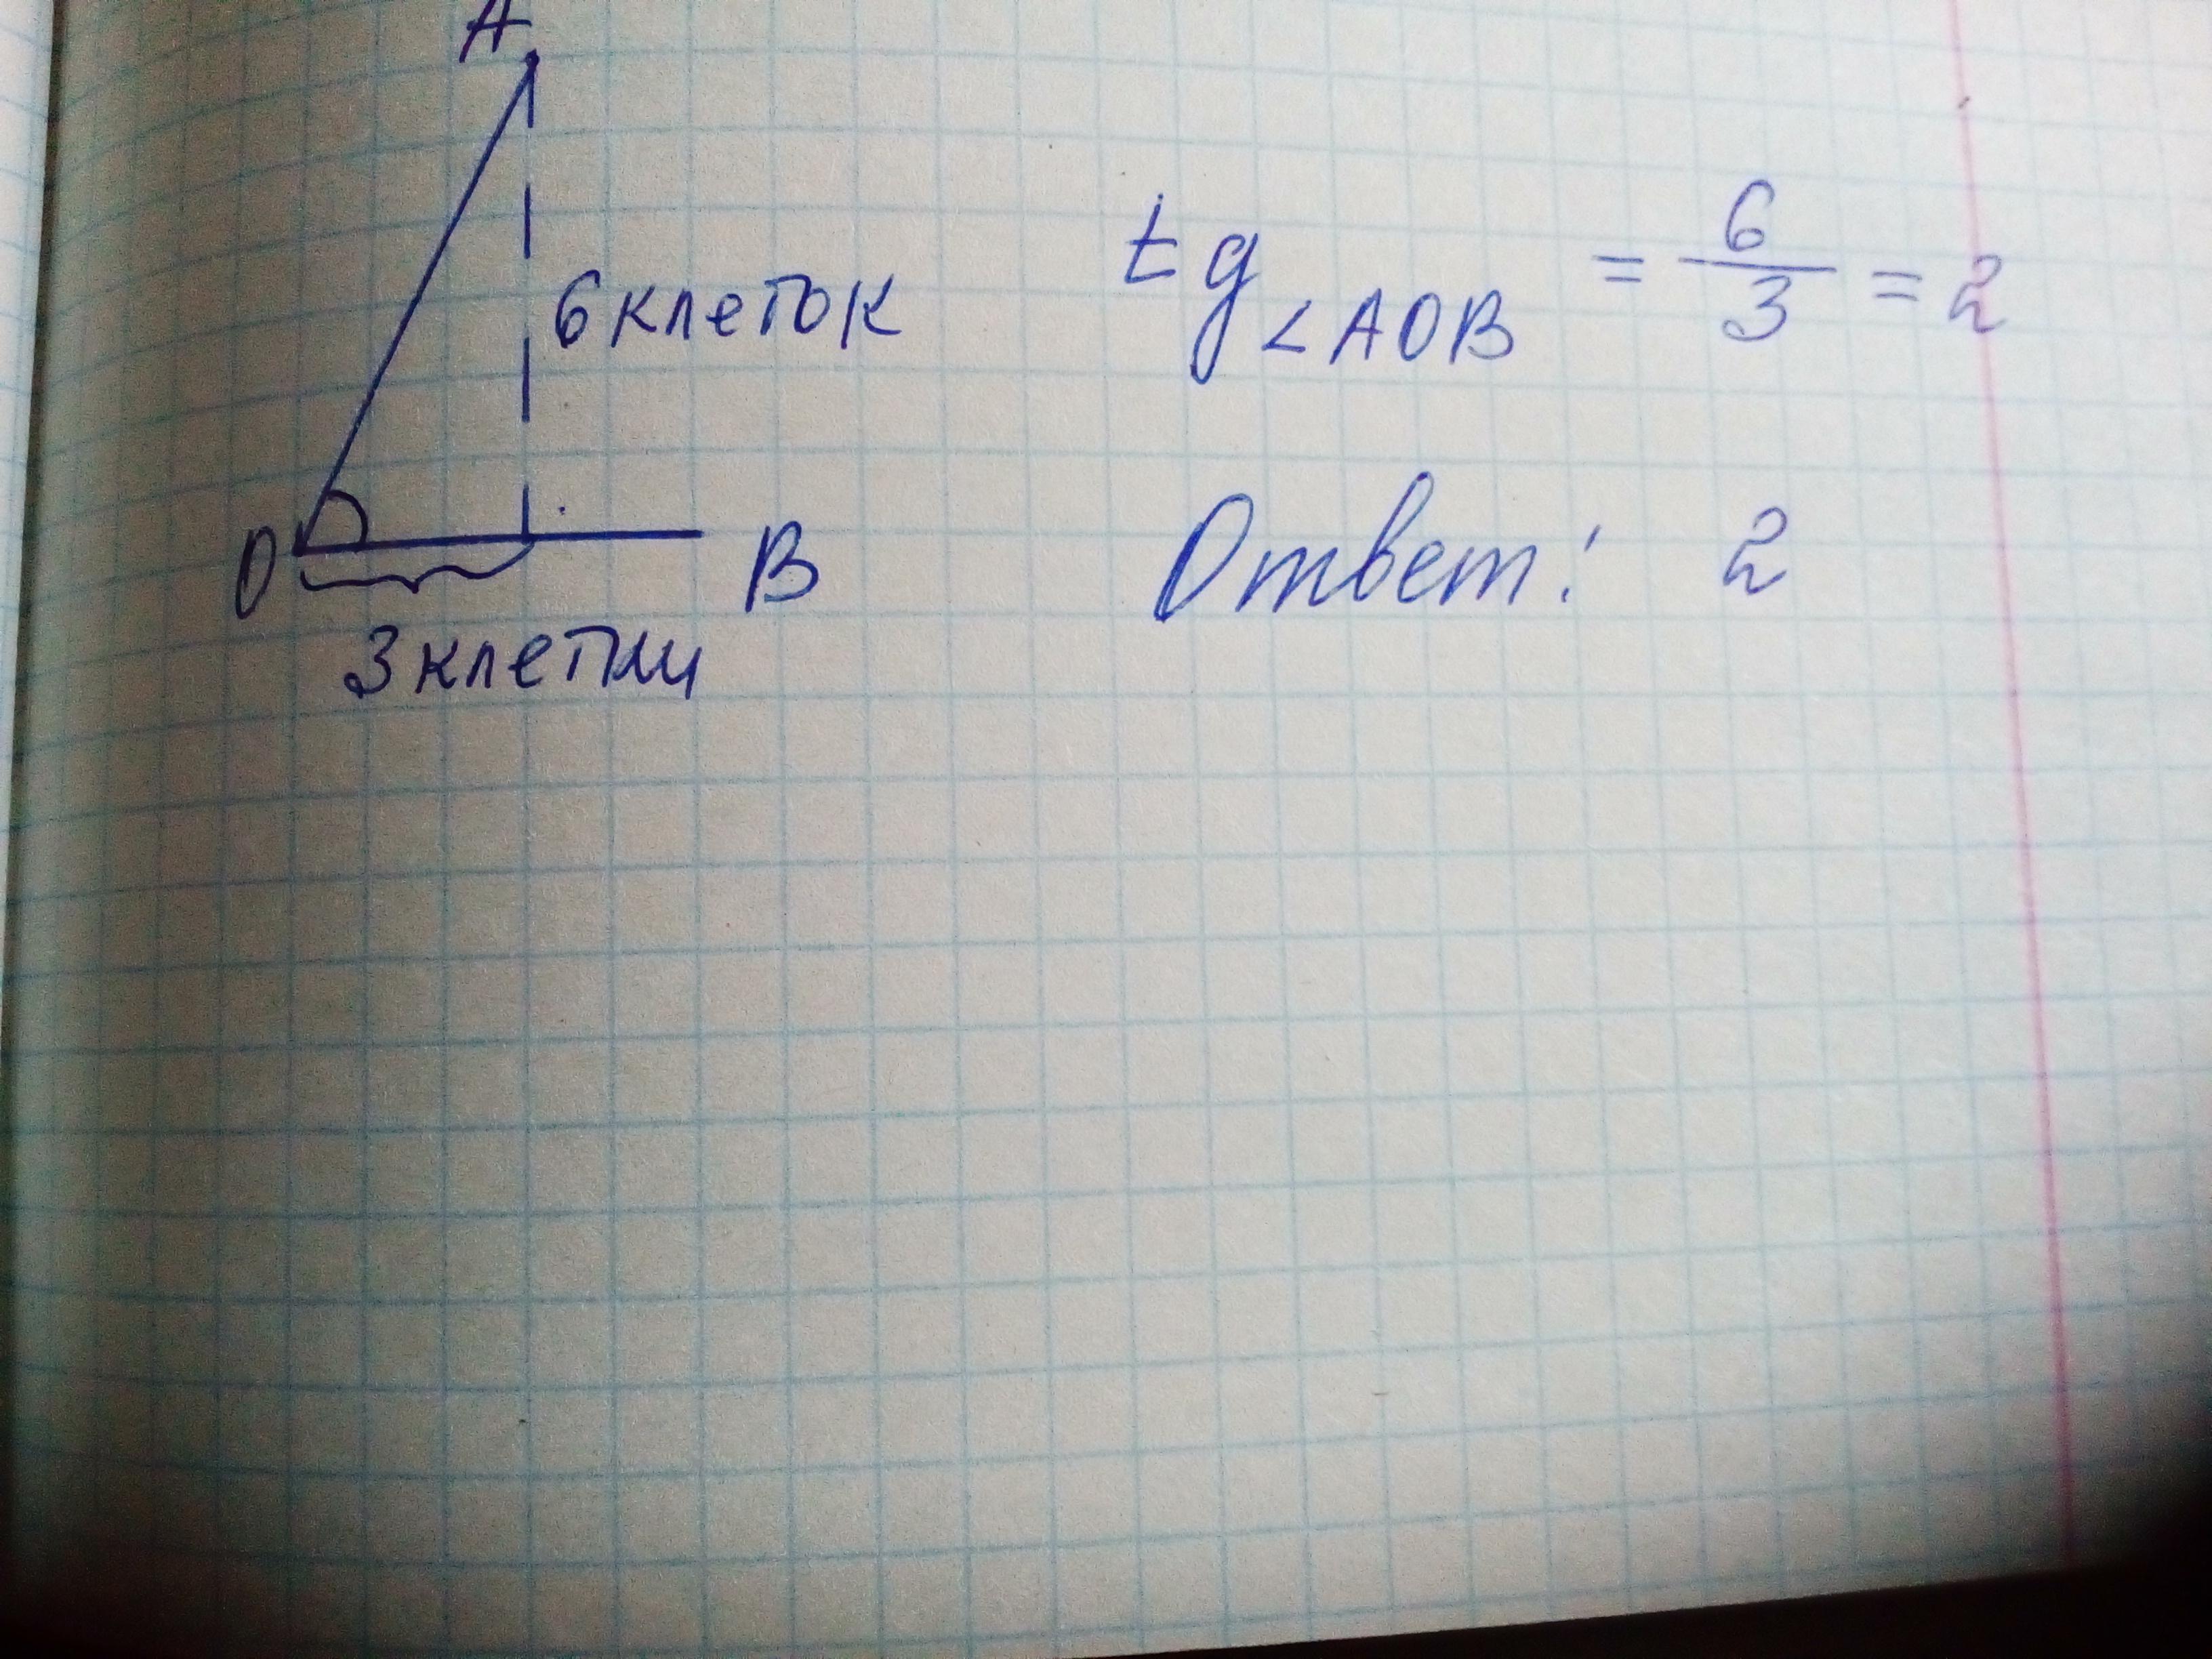 A
6 клеток
O
B
3 клетки
tg<AOB = 6/3 = 2
Ответ: 2